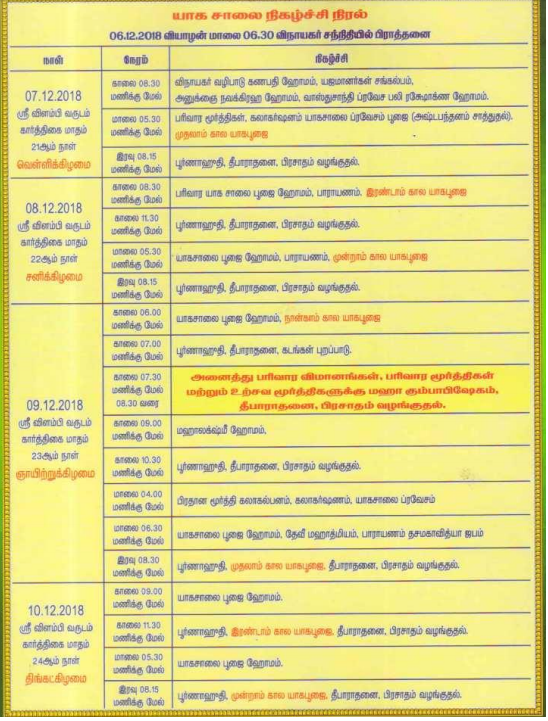 யாக சாலை நிகழ்ச்சி நிரல்
06.12.2018 வியாழன் மாலை 06.30 விநாயகர் சந்நிதியில் பிராத்தனை
நாள் நேரம் நிகழ்ச்சி
07.12.2018
ஸ்ரீ விளம்பி வருடம்
கார்த்திகை மாதம்
21ஆம் நாள்
வெள்ளிக்கிழமை
காலை 08.30
மணிக்கு மேல்
விநாயகர் வழிபாடு கணபதி ஹோமம், யஜமானர்கள் சங்கல்பம்,
அனுக்ஞை நவக்கிரஹ ஹோமம், வாஸ்துசாந்தி ப்ரவேச பலி ரக்ஷோக்ண ஹோமம்.
மாலை 05.30
மணிக்கு மேல்
பரிவார மூர்த்திகள், கலாகர்ஷணம் யாகசாலை ப்ரவேசம் பூஜை (அஷ்டபந்தனம் சாத்துதல்).
முதலாம் கால யாகபூஜை
இரவு 08.15
மணிக்கு மேல்
பூர்ணாஹுதி, தீபாராதனை, பிரசாதம் வழங்குதல்.
08.12.2018
ஸ்ரீ விளம்பி வருடம்
கார்த்திகை மாதம்
22ஆம் நாள்
சனிக்கிழமை
காலை 08.30
மணிக்கு மேல்
பரிவார யாக சாலை பூஜை ஹோமம், பாராயணம். இரண்டாம் கால யாகபூஜை
காலை 11.30
மணிக்கு மேல்
பூர்ணாஹுதி, தீபாராதனை, பிரசாதம் வழங்குதல்.
மாலை 05.30
மணிக்கு மேல்
யாகசாலை பூஜை ஹோமம், பாராயணம், மூன்றாம் கால யாகபூஜை
இரவு 08.15
மணிக்கு மேல்
பூர்ணாஹுதி, தீபாராதனை, பிரசாதம் வழங்குதல்.
09.12.2018
ஸ்ரீ விளம்பி வருடம்
கார்த்திகை மாதம்
23ஆம் நாள்
ஞாயிற்றுக்கிழமை
காலை 06.00
மணிக்கு மேல்
யாகசாலை பூஜை ஹோமம், நான்காம் கால யாகபூஜை
காலை 07.00
மணிக்கு மேல்
பூர்ணாஹுதி, தீபாராதனை, கடங்கள் புறப்பாடு.
காலை 07.30
மணிக்கு மேல்
08.30 வரை
அனைத்து பரிவார விமானங்கள், பரிவார மூர்த்திகள்
மற்றும் உற்சவ மூர்த்திகளுக்கு மஹா கும்பாபிஷேகம்,
தீபாராதனை, பிரசாதம் வழங்குதல்.
காலை 09.00
மணிக்கு மேல்
மஹாலக்ஷ்மீ ஹோமம்,
காலை 10.30
மணிக்கு மேல்
பூர்ணாஹுதி, தீபாராதனை, பிரசாதம் வழங்குதல்.
மாலை 04.00
மணிக்கு மேல்
பிரதான மூர்த்தி கலாகல்பனம், கலாகர்ஷணம், யாகசாலை ப்ரவேசம்
மாலை 06.30
மணிக்கு மேல்
யாகசாலை பூஜை ஹோமம், தேவீ மஹாத்மியம், பாராயணம் தசமகாவித்யா ஜபம்
இரவு 08.30
மணிக்கு மேல்
பூர்ணாஹுதி, முதலாம் கால யாகபூஜை, தீபாராதனை, பிரசாதம் வழங்குதல்.
10.12.2018
ஸ்ரீ விளம்பி வருடம்
கார்த்திகை மாதம்
24ஆம் நாள்
திங்கட்கிழமை
காலை 09.00
மணிக்கு மேல்
யாகசாலை பூஜை ஹோமம்.
காலை 11.30
மணிக்கு மேல்
பூர்ணாஹுதி, இரண்டாம் கால யாகபூஜை, தீபாராதனை, பிரசாதம் வழங்குதல்.
மாலை 05.30
மணிக்கு மேல்
யாகசாலை பூஜை ஹோமம்.
இரவு 08.15
மணிக்கு மேல்
பூர்ணாஹுதி, மூன்றாம் கால யாகபூஜை, தீபாராதனை, பிரசாதம் வழங்குதல்.